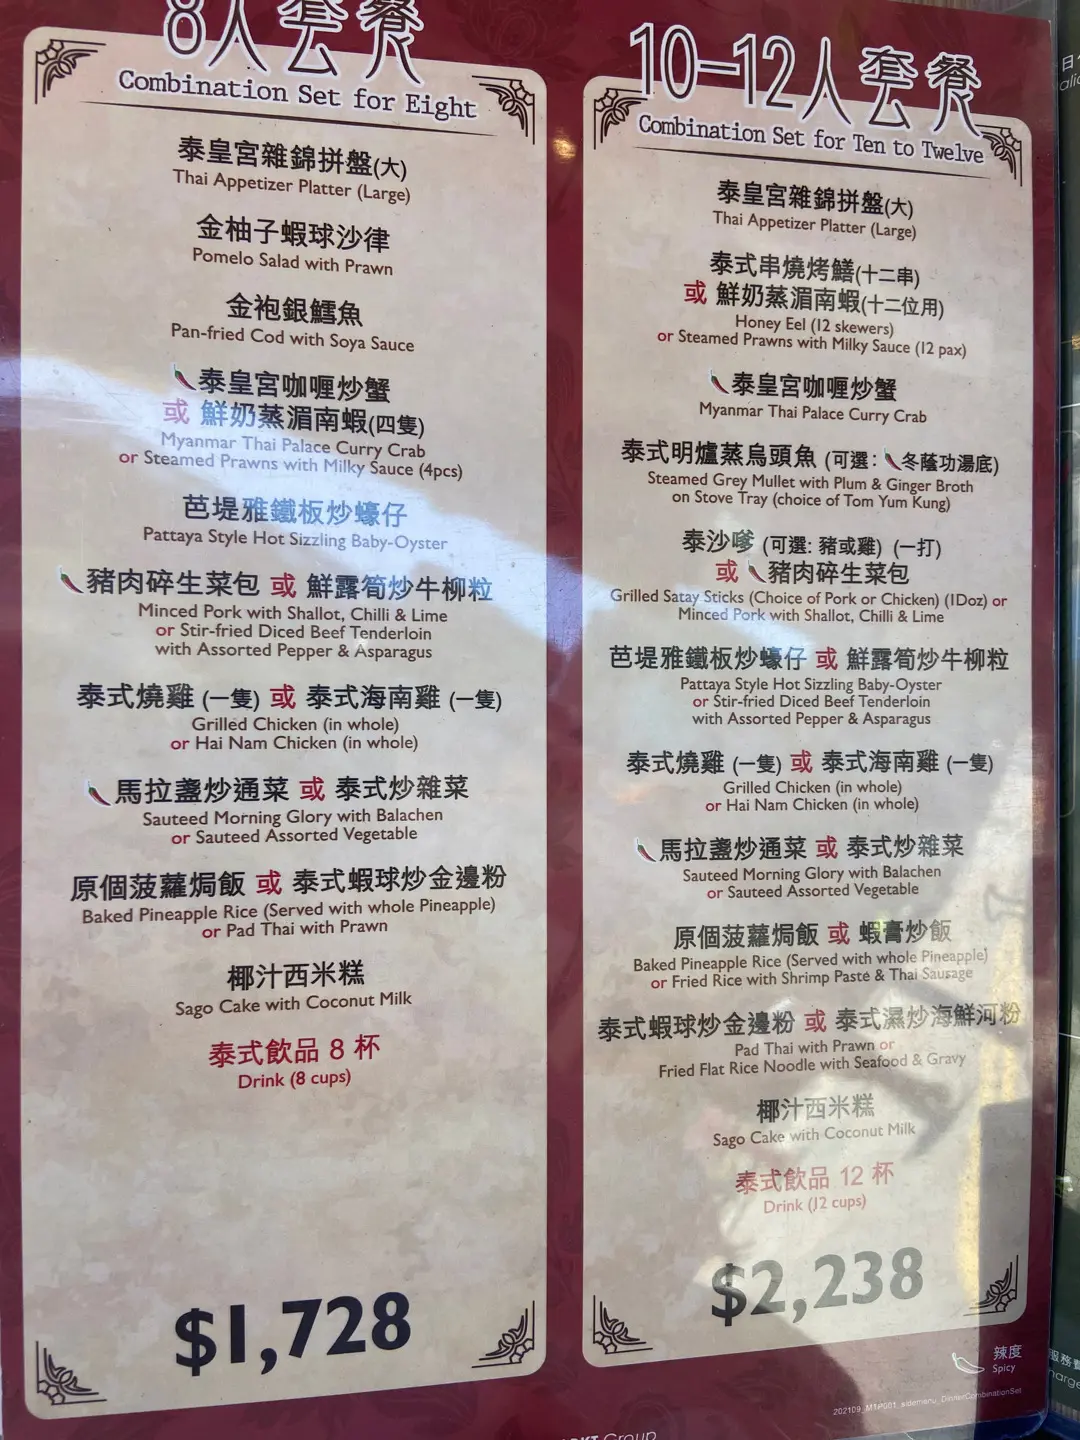 8人套餐
Combination Set for Eight
泰皇宮雜錦拼盤(大)
Thai Appetizer Platter (Large)
金柚子蝦球沙律
Pomelo Salad with Prawn
金袍銀鱈魚
Pan-fried Cod with Soya Sauce
泰皇宮咖喱炒蟹
或 鮮奶蒸湄南蝦(四隻)
Myanmar Thai Palace Curry Crab
or Steamed Prawns with Milky Sauce (4pcs)
芭堤雅鐵板炒蠔仔
Pattaya Style Hot Sizzling Baby-Oyster
豬肉碎生菜包 或 鮮露筍炒牛柳粒
Minced Pork with Shallot, Chilli & Lime
or Stir-fried Diced Beef Tenderloin
with Assorted Pepper & Asparagus
泰式燒雞 (一隻) 或 泰式海南雞 (一隻)
Grilled Chicken (in whole)
or Hai Nam Chicken (in whole)
馬拉盞炒通菜 或 泰式炒雜菜
Sauteed Morning Glory with Balachen
or Sauteed Assorted Vegetable
原個菠蘿焗飯 或 泰式蝦球炒金邊粉
Baked Pineapple Rice (Served with whole Pineapple)
or Pad Thai with Prawn
椰汁西米糕
Sago Cake with Coconut Milk
泰式飲品 8 杯
Drink (8 cups)
$1,728
10-12人套餐
Combination Set for Ten to Twelve
泰皇宮雜錦拼盤(大)
Thai Appetizer Platter (Large)
泰式串燒烤鱔(十二串)
或 鮮奶蒸湄南蝦(十二位用)
Honey Eel (12 skewers)
or Steamed Prawns with Milky Sauce (12 pax)
泰皇宮咖喱炒蟹
Myanmar Thai Palace Curry Crab
泰式明爐蒸烏頭魚 (可選: 冬蔭功湯底)
Steamed Grey Mullet with Plum & Ginger Broth
on Stove Tray (choice of Tom Yum Kung)
泰沙嗲 (可選: 豬或雞) (一打)
或 豬肉碎生菜包
Grilled Satay Sticks (Choice of Pork or Chicken) (1Doz) or
Minced Pork with Shallot, Chilli & Lime
芭堤雅鐵板炒蠔仔 或 鮮露筍炒牛柳粒
Pattaya Style Hot Sizzling Baby-Oyster
or Stir-fried Diced Beef Tenderloin
with Assorted Pepper & Asparagus
泰式燒雞 (一隻) 或 泰式海南雞 (一隻)
Grilled Chicken (in whole)
or Hai Nam Chicken (in whole)
馬拉盞炒通菜 或 泰式炒雜菜
Sauteed Morning Glory with Balachen
or Sauteed Assorted Vegetable
原個菠蘿焗飯 或 蝦膏炒飯
Baked Pineapple Rice (Served with whole Pineapple)
or Fried Rice with Shrimp Paste & Thai Sausage
泰式蝦球炒金邊粉 或 泰式濕炒海鮮河粉
Pad Thai with Prawn or
Fried Flat Rice Noodle with Seafood & Gravy
椰汁西米糕
Sago Cake with Coconut Milk
泰式飲品 12 杯
Drink (12 cups)
$2,238
辣度
Spicy
Group
服務